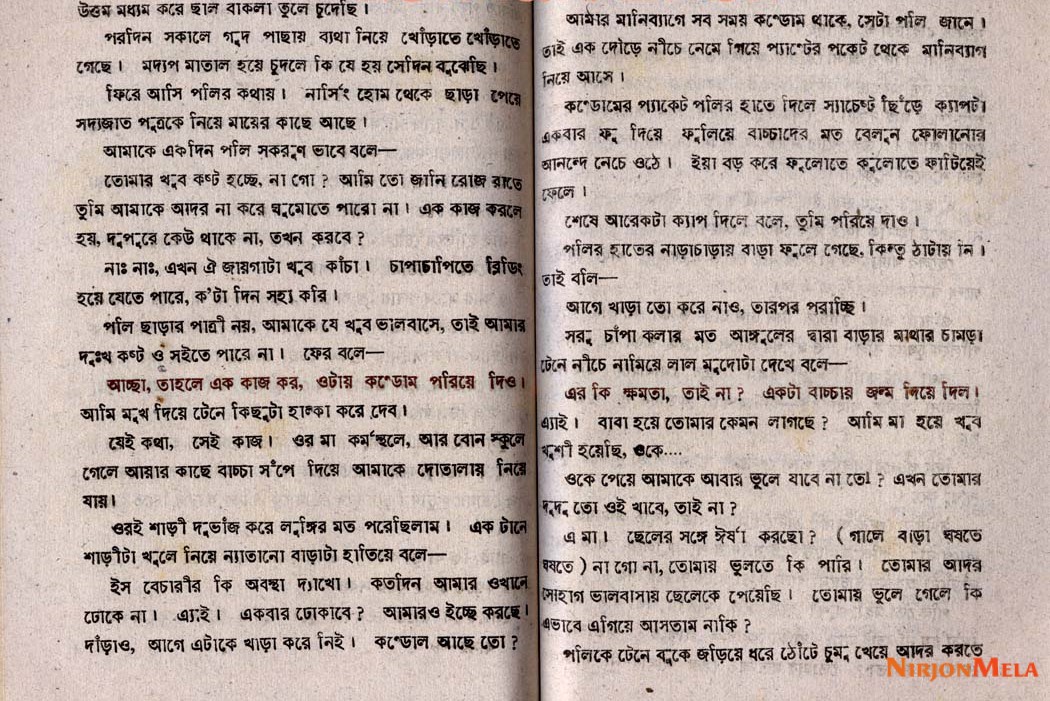 উত্তম মধ্যম করে ছাল বাকলা তুলে চুদেছি।
পরদিন সকালে গুদ পাছায় ব্যথা নিয়ে খোঁড়াতে খোঁড়াতে
গেছে। মদ্যপ মাতাল হয়ে চুদলে কি যে হয় সেদিন বুঝেছি।
ফিরে আসি পলির কথায়। নার্সিং হোম থেকে ছাড়া পেয়ে
সদ্যজাত পুত্রকে নিয়ে মায়ের কাছে আছে।
আমাকে একদিন পলি সকরুণ ভাবে বলে—
তোমার খুব কষ্ট হচ্ছে, না গো? আমি তো জানি রোজ রাতে
তুমি আমাকে আদর না করে ঘুমোতে পারো না। এক কাজ করলে
হয়, দুপুরে কেউ থাকে না, তখন করবে?
নাঃ নাঃ, এখন ঐ জায়গাটা খুব কাঁচা। চাপাচাপিতে ব্লিডিং
হয়ে যেতে পারে, ক'টা দিন সহ্য করি।
পলি ছাড়ার পাত্রী নয়, আমাকে যে খুব ভালবাসে, তাই আমার
দুঃখ কষ্ট ও সইতে পারে না। ফের বলে—
আচ্ছা, তাহলে এক কাজ কর, ওটায় কণ্ডোম পরিয়ে দিও।
আমি মুখ দিয়ে টেনে কিছুটা হাল্কা করে দেব।
যেই কথা, সেই কাজ। ওর মা কর্মস্থলে, আর বোন স্কুলে
গেলে আয়ার কাছে বাচ্চা সঁপে দিয়ে আমাকে দোতালায় নিয়ে
যায়।
ওরই শাড়ী দুভাঁজ করে লুঙ্গির মত পরেছিলাম। এক টানে
শাড়ীটা খুলে নিয়ে ন্যাতানো বাড়াটা হাতিয়ে বলে—
ইস বেচারীর কি অবস্থা দ্যাখো। কতদিন আমার ওখানে
ঢোকে না। এ্যাই। একবার ঢোকাবে? আমারও ইচ্ছে করছে।
দাঁড়াও, আগে এটাকে খাড়া করে নিই। কণ্ডোল আছে তো?
আমার মানিব্যাগে সব সময় কণ্ডোম থাকে, সেটা পলি জানে।
তাই এক দৌড়ে নীচে নেমে গিয়ে প্যাণ্টের পকেট থেকে মানিব্যাগ
নিয়ে আসে।
কণ্ডোমের প্যাকেট পলির হাতে দিলে স্যাচেণ্ট ছিঁড়ে ক্যাপটা
একবার ফু দিয়ে ফুলিয়ে বাচ্চাদের মত বেলুন ফোলানোর
আনন্দে নেচে ওঠে। ইয়া বড় করে ফুলোতে ফুলোতে ফাটিয়েই
ফেলে।
শেষে আরেকটা ক্যাপ দিলে বলে, তুমি পরিয়ে দাও।
পলির হাতের নাড়াচাড়ায় বাড়া ফুলে গেছে, কিন্তু ঠাটায় নি।
তাই বলি—
আগে খাড়া তো করে নাও, তারপর পরাচ্ছি।
সরু চাঁপা কলার মত আঙ্গুলের দ্বারা বাড়ার মাথার চামড়া
টেনে নীচে নামিয়ে লাল মুদোটা দেখে বলে—
এর কি ক্ষমতা, তাই না? একটা বাচ্চায় জন্ম দিয়ে দিল।
এ্যাই। বাবা হয়ে তোমার কেমন লাগছে? আমি মা হয়ে খুব
খুশী হয়েছি, ওকে....
ওকে পেয়ে আমাকে আবার ভুলে যাবে না তো? এখন তোমার
দুদু তো ওই খাবে, তাই না?
এ মা। ছেলের সঙ্গে ঈর্ষা করছো? (গালে বাড়া ঘষতে
ঘষতে) না গো না, তোমায় ভুলতে কি পারি। তোমার আদর
সোহাগ ভালবাসায় ছেলেকে পেয়েছি। তোমায় ভুলে গেলে কি
এভাবে এগিয়ে আসতাম নাকি?
পলিকে টেনে বুকে জড়িয়ে ধরে ঠোঁটে চুমু খেয়ে আদর করতে
NIRJONMELA